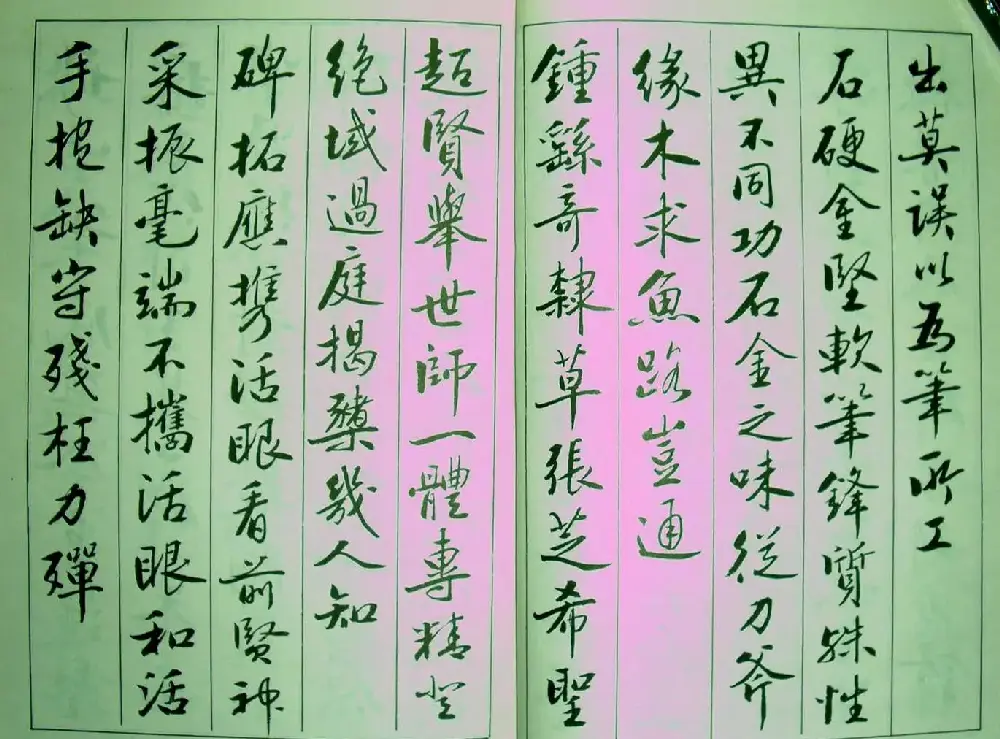 出莫误以为筆所工
石硬金堅軟筆鋒質殊性
異不同功石金之味從刀斧
緣木求魚路豈通
鍾繇奇隸草張芝希聖
超賢舉世師一體專精登
绝域過庭揭櫫幾人知
碑拓應携活眼看前賢神
采振毫端不攜活眼和活
手抱缺守殘枉力殫